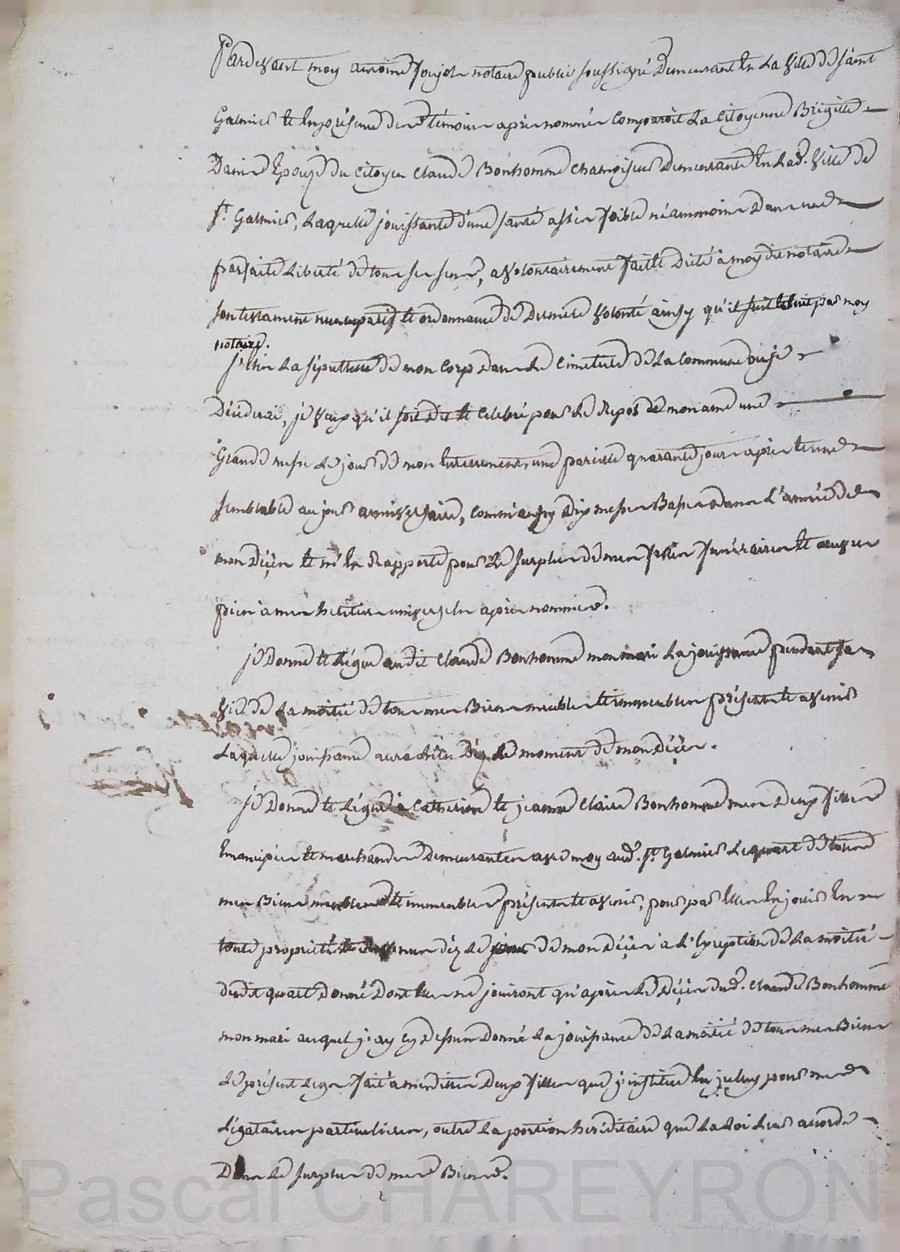 Pardevant moy antoine Soujol notaire public soussigné Demeurant En La Ville de saint
Galmier Et En présence des témoins après nommés Comparoit La Citoyenne Brigitte
Épouze du Citoyen Claude Bonhomme Chamoiseur Demeurante En Lad. Ville de
St. Galmier, Laquelle jouissante d'une santé assés foible néammoins Dans une
parfaite Liberté de tous ses sens, a Volontairement fait Et dicté a moy dit notaire
son testament nuncupatif Et ordonnance de Dernière Volonté ainsy qu'il suit par moy
notaire.
La sépulture de mon Corps dans Le Cimetière de La Commune ou je
Déciderai, je Veux qu'il soit dit Et Celebré pour Le Repos de mon ame une
Grande messe Le jour de mon Enterrement, une pareille quarante jours après Et une
semblable au jour anniversaire, comm'aussy Dix messes Basses Dans L'année de
mon Décès Et m'En Rapporte pour Le surplus de mes frais funéraires Et œuvres
pies a mes heritiers universels après nommés.
je Donne Et Légue audit Claude Bonhomme mon mari La jouissance pendant sa
Vie de La moitié de tous mes Biens meubles Et immeubles présents Et avenir
Laquelle jouissance aura Lieu Dèz Le moment de mon Décès.
je Donne Et Légue à Catherine Et jeanne Claire Bonhomme mes Deux filles
Emancipées Et marchandes Demeurantes avec moy aud. St. Galmier Le quart de tous
mes Biens meubles Et immeubles présents Et avenir, pour par Elles En jouir En
toute propriété dèz Le jour de mon Décès a L'Exception de La moitié
dudit quart donné Dont Elles ne jouiront qu'après Le Décès dud. Claude Bonhomme
mon mari auquel j'ay Cy dessus Donné La jouissance de La moitié de tous mes Biens
Le présent Legs fait a mesdittes Deux filles que j'institue En jceluy pour mes
Légataires particulieres, outre La portion héréditaire que La Loi Leur accorde
Dans Le surplus de mes Biens.
Pascal CHAREYRON